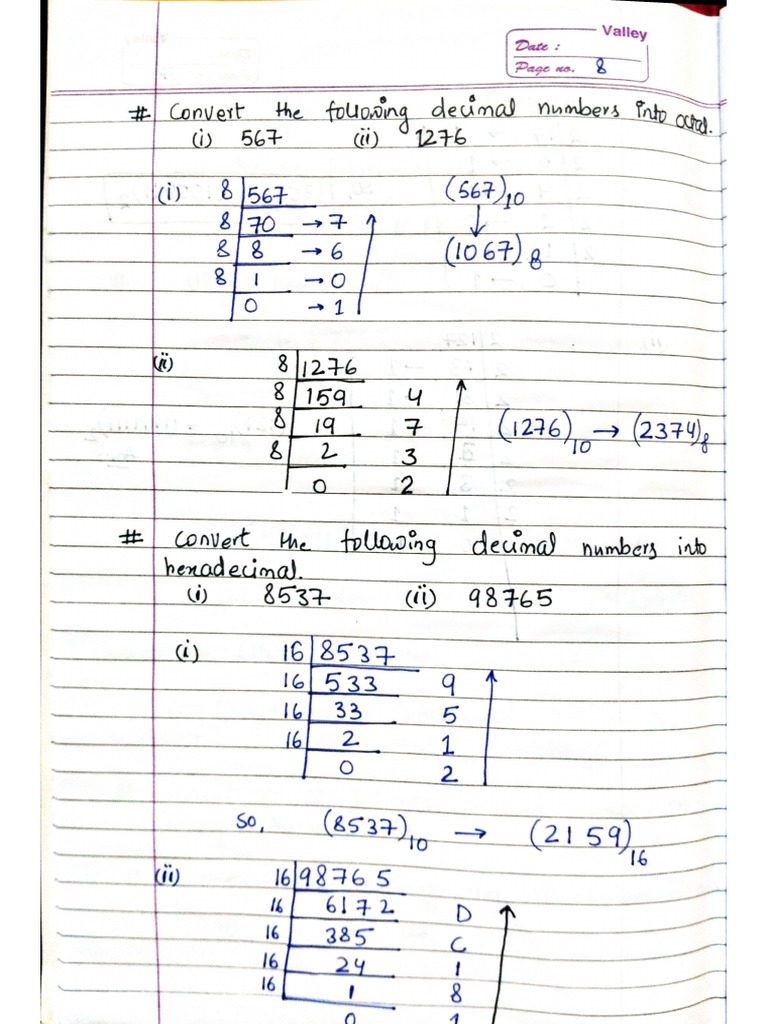 Valley
Date :
Page no. 8
# Convert the following decimal numbers into octal.
(i) 567 (ii) 1276
(i) 8 567 (567)10
8 70 → 7 ↓
8 8 → 6 (1067)8
8 1 → 0
0 → 1
(ii) 8 1276
8 159 4
8 19 7 (1276)10 → (2374)8
8 2 3
0 2
# Convert the following decimal numbers into
hexadecimal.
(i) 8537 (ii) 98765
(i) 16 8537
16 533 9
16 33 5
16 2 1
0 2
So, (8537)10 → (2159)16
(ii) 16 98765
16 6172 D
16 385 C
16 24 1
16 1 8
0 1